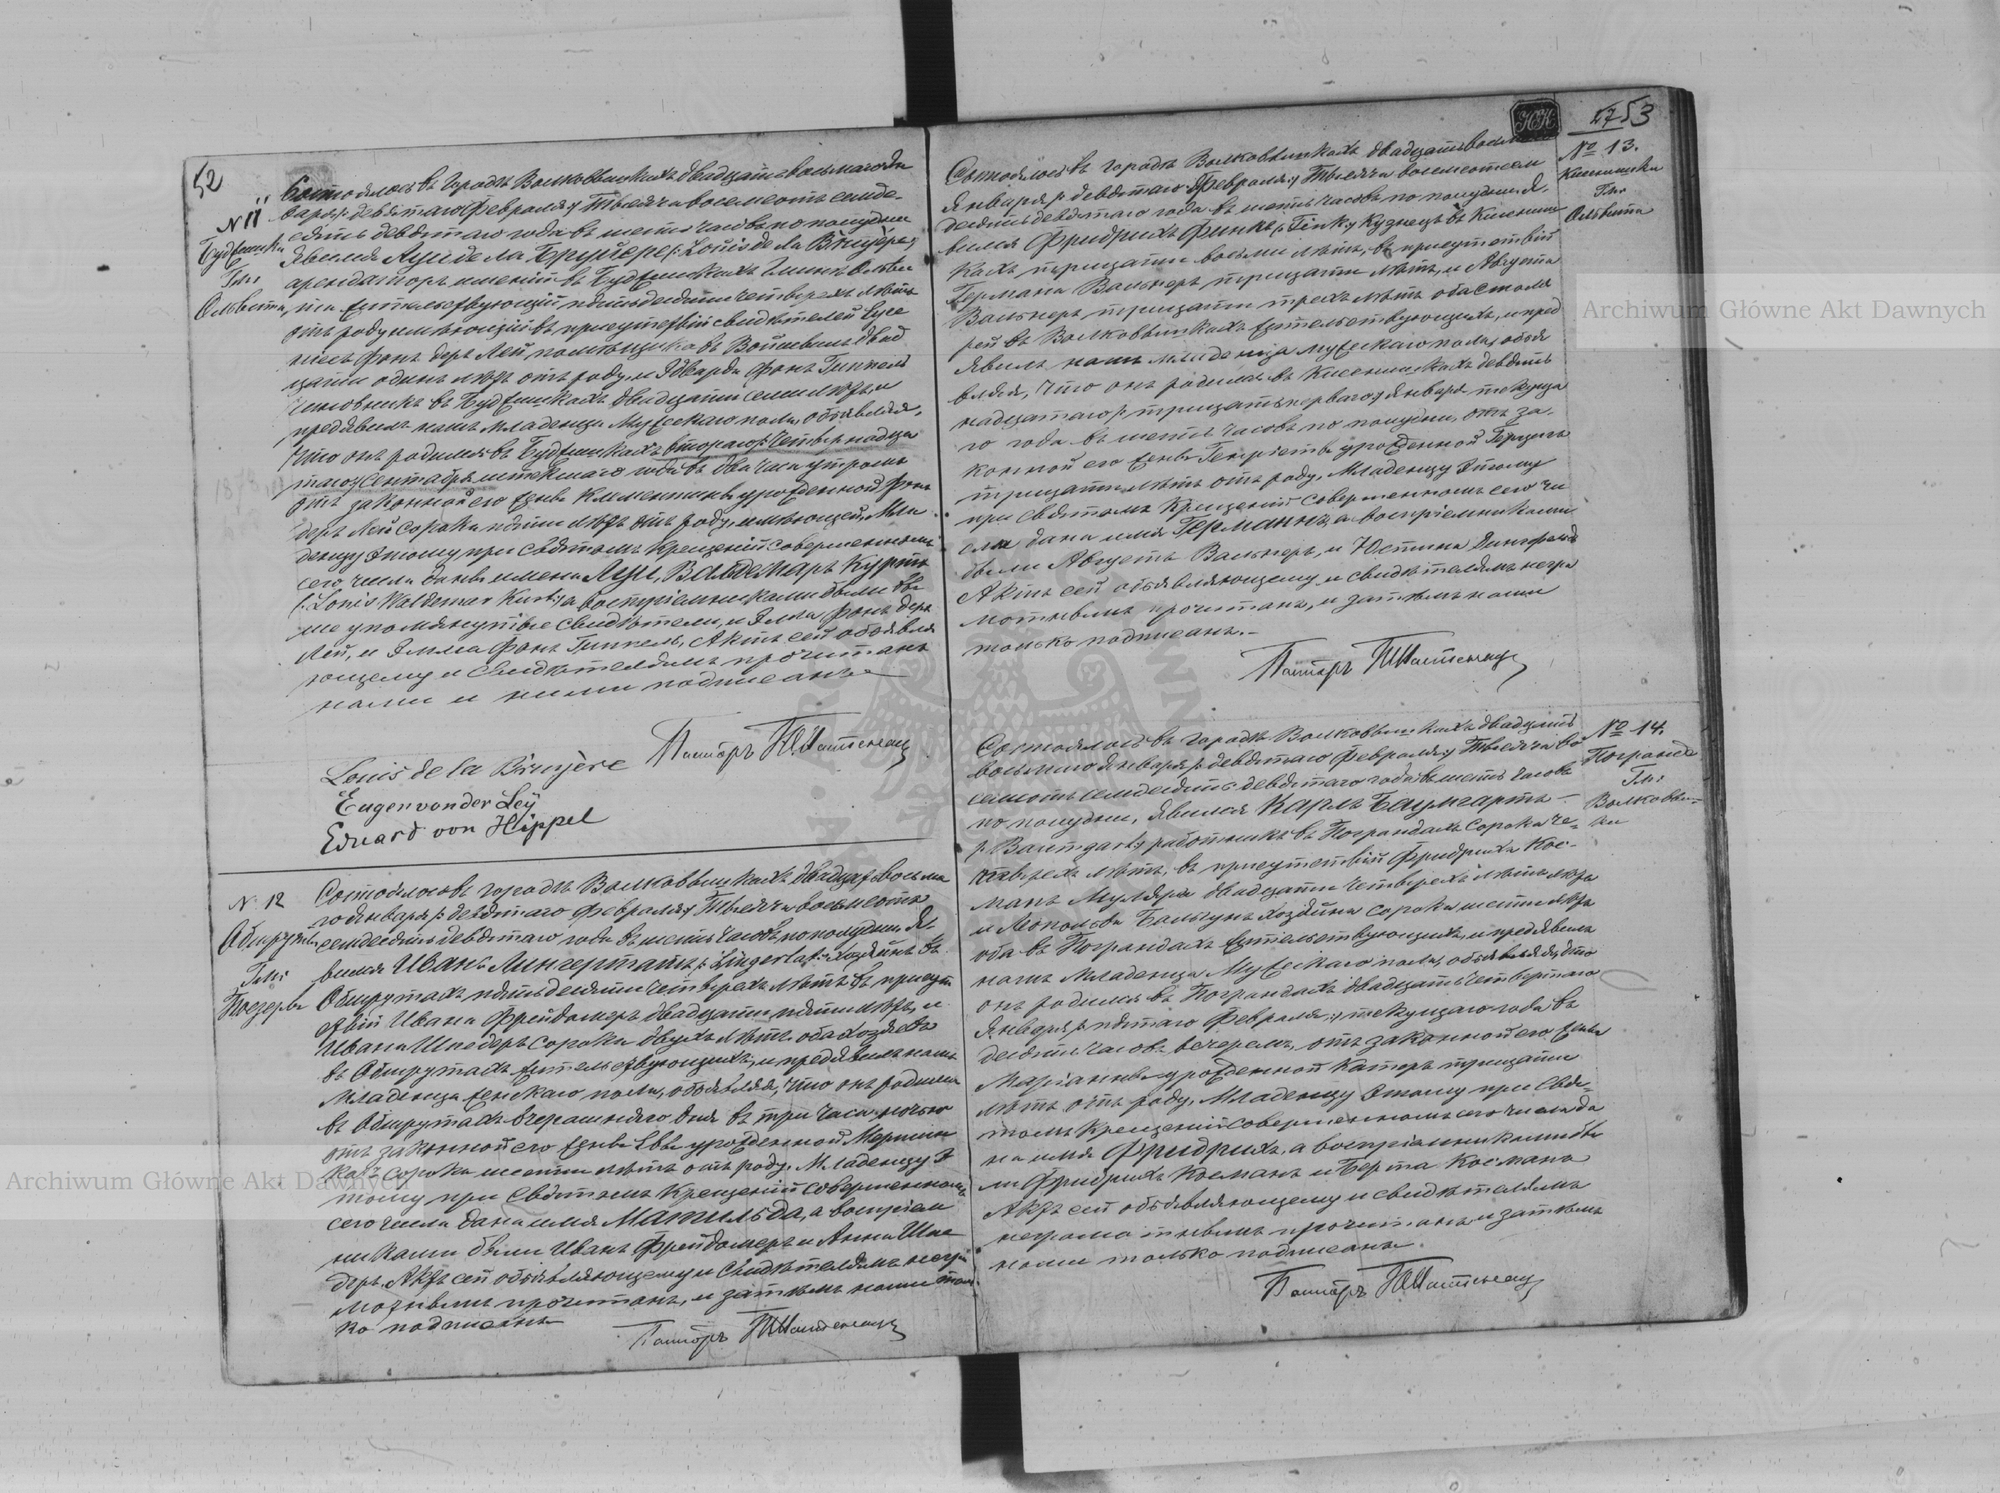 52
N 11
Будвешки
Гм:
Ольвита
Состоялось въ городѣ Волковышкахъ двадцать восьмаго Ян
варя /: девятаго Февраля :/ тысяча восемьсотъ семьде-
сятъ девятаго года въ шесть часовъ по полудни
явился Луи де ла Брюйере /: Louis de la Bruyère :/
арендаторъ имѣній въ Будвешкахъ Гмины Ольви
та жительствующій пятьдесятъ четырехъ лѣтъ
отъ роду имѣющій въ присутствіи свидѣтелей Евге
ніесъ фонъ деръ Лей, помѣщика въ двад
цати одинъ лѣтъ отъ роду, и Эдварда фонъ Гиппель
чиновникъ въ Будвешкахъ двадцати семи лѣтъ и
предявилъ намъ младенца мужескаго пола, объявляя,
что онъ родился въ Будвешкахъ втораго /: четырнадца
таго :/ Сентября истекшаго года въ два часа утромъ
отъ законной его жены Клементины урожденной фонъ
деръ Лей сорока пяти лѣтъ отъ роду имѣющей, Мла
денцу этому при Святомъ Крещеніи совершенномъ
сего числа даны имена Луи, Вальдемаръ Куртъ
/: Louis Waldemar Kurt :/ а воспріемниками были вы
ше упомянутые свидѣтели, и Элла фонъ деръ
Лей, и Эмма фонъ Гиппель, Актъ сей объявля
ющему и свидѣтелямъ прочитанъ
нами и ними подписанъ.
Пасторъ
Louis de la Bruyère
Eugen von der Leÿ
Eduard von Hippel
N. 12
Обшруты
Гм:
Состоялось въ городѣ Волковышкахъ двадцать восьма
го Января /: девятаго Февраля :/ тысяча восемьсотъ
семдесятъ девятаго года въ шесть часовъ по полудни Я-
вился Иванъ Лингертатъ /: Lingertat :/ хозяинъ въ
Обшрутахъ пятьдесяти четырехъ лѣтъ въ присут
ствіи Ивана Фрейдомеръ двадцати пяти лѣтъ, и
Ивана Шнедеръ сорока двухъ лѣтъ оба хозяевъ
въ Обшрутахъ жительствующихъ, и предявилъ намъ
младенца женскаго пола, объявляя, что онъ родился
въ Обшрутахъ вчерашняго дня въ три часа ночью
отъ законной его жены Евы урожденной
сорока шести лѣтъ отъ роду. Младенцу э
тому при Святомъ Крещеніи совершенномъ
сего числа дана имя Матильда, а воспріем
никами были Иванъ Фрейдомеръ и Анна Шне
деръ. Актъ сей объявляющему и свидѣтелямъ негра
мотнымъ прочитанъ, и затѣмъ нами толь
ко подписанъ
Пасторъ
27 53
№ 13.
Гм:
Ольвита
Состоялось въ городѣ Волковышкахъ двадцать восьм
Января /: девятаго Февраля :/ тысяча восемьсотъ сем
десятъ девятаго года въ шесть часовъ по полудни Я-
вился Фридрихъ Финкъ /: Fink :/ кузнецъ въ
кахъ тридцати восьми лѣтъ, въ присутствіи
Германа Вальнеръ тридцати лѣтъ, и Августа
Вальнеръ тридцати трехъ лѣтъ оба столя
рей въ Волковышкахъ жительствующихъ, и пред
явилъ намъ младенца мужескаго пола, объя
вляя, что онъ родился въ девять
надцатаго /: тридцать перваго :/ Января текуща
го года въ шесть часовъ по полудни, отъ за-
конной его жены Генріеты урожденной
тридцати лѣтъ отъ роду, Младенцу этому
при Святомъ Крещеніи совершенномъ сего чи
сла дана имя Германъ, а воспріемниками
были Августъ Вальнеръ, и Юстина
Актъ сей объявляющему и свидѣтелямъ негра
мотнымъ прочитанъ, и затѣмъ нами
только подписанъ.-
Пасторъ
№ 14.
Погранда
Гм:
Волковыш=
ки
Состоялось въ городѣ Волковышкахъ двадцать
восьмаго Января /: девятаго Февраля :/ тысяча во
семсотъ семдесятъ девятаго года въ шесть часовъ
по полудни, явился Карлъ Баумгартъ
/: Baumgart :/ работникъ въ Пограндахъ сорока че=
тырехъ лѣтъ, въ присутствіи Фридриха Кос-
манъ Муляра двадцати четырехъ лѣтъ
и Леопольда хозяина сорока шести лѣтъ
оба въ Пограндахъ жительствующихъ, и предявилъ
намъ младенца Мужескаго пола, объявляя, что
онъ родился въ Пограндахъ двадцать четвертаго
Января /: пятаго Февраля :/ текущаго года въ
десять часовъ вечеромъ, отъ законной его жены
Маріанны урожденной Каторъ тридцати
лѣтъ отъ роду, Младенцу этому при Свя=
томъ Крещеніи совершенномъ сего числа да
на имя Фридрихъ, а воспріемниками бы
ли Фридрихъ Косманъ и Берта Косманъ
Актъ сей объявляющему и свидѣтелямъ
неграмотнымъ прочитанъ и затѣмъ
нами только подписанъ.
Пасторъ
Archiwum Główne Akt Dawnych
Archiwum Główne Akt Dawnych